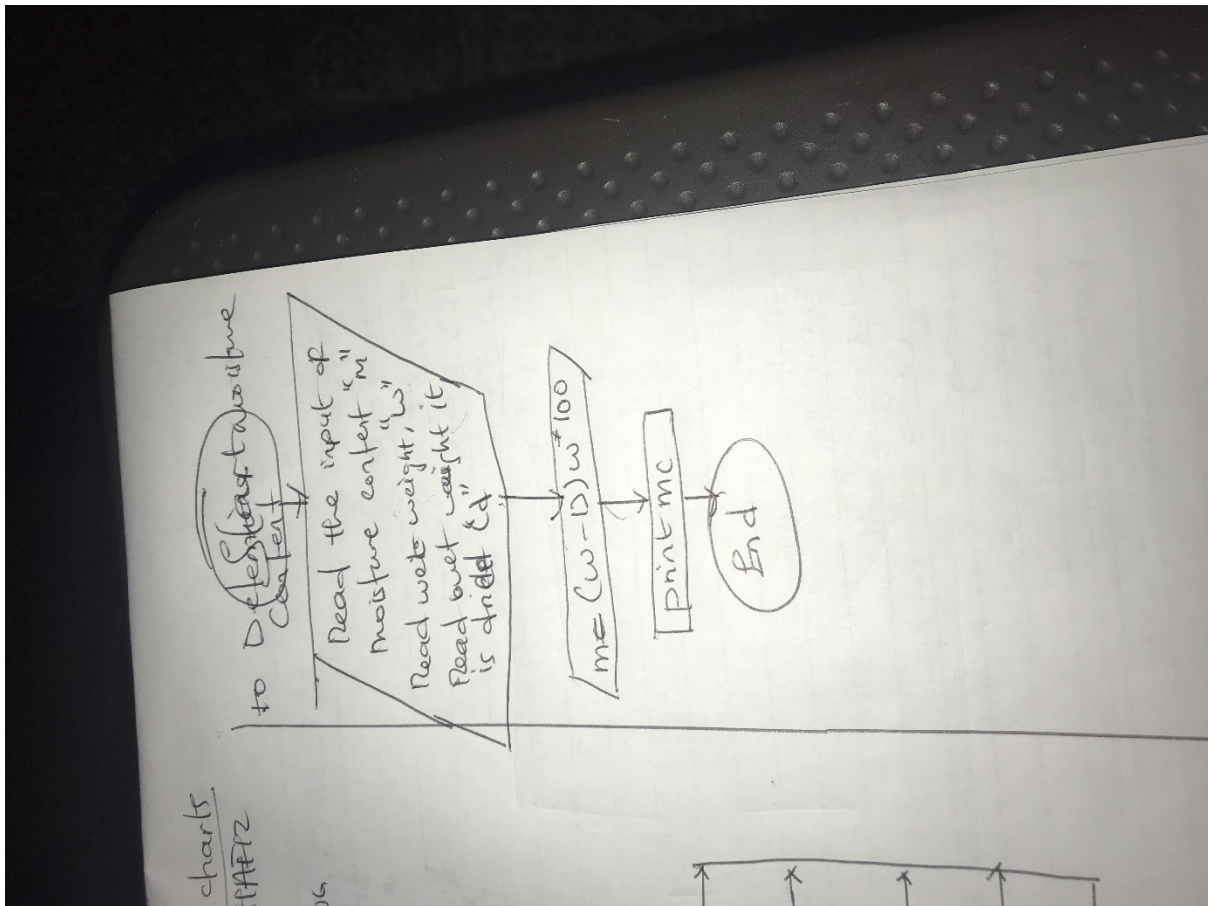 charts
to Determine moisture
content
Start
Read the input of
moisture content "m"
Read wet weight, "w"
Read weight it
is dried "d"
mc (w-D)w*100
print mc
End